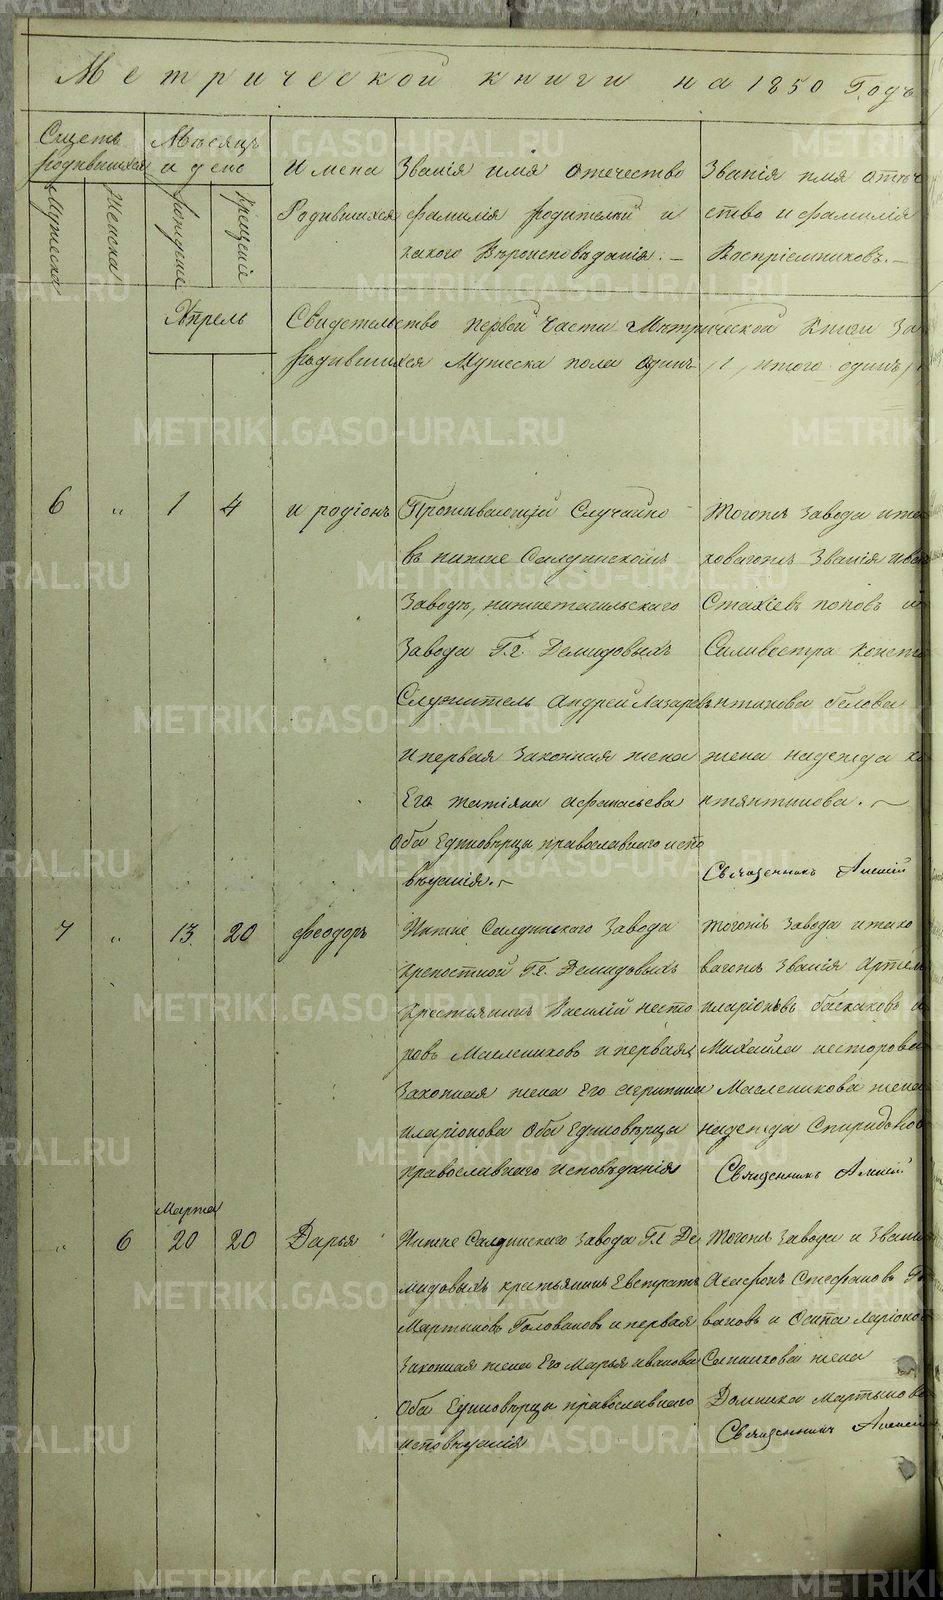 Метрической книги на 1850 Годъ
Сщетъ родившихся
Мѣсяцъ и день
Имена Родившихся
Званія имя отечество фамилія родителей и какого Вѣроисповѣданія. —
Званія имя отечество и фамилія Воспріемниковъ. —
Мужеска
Женска
рожденіе
крещеніе
Апрель
Свидетельство первой Части Метрической Книги За
родившихся Мужеска пола одинъ /1/, итого одинъ /1
6 „ 1 4 иродіонъ
Проживающій Случайно
въ нижне Салдинскомъ
Заводѣ, нижнетагильскаго
Завода Гг. Демидовыхъ
Служитель Андрей Лазаревъ
и первая Законная жена
Его татіяна афанасьева
оба Единовѣрцы православнаго испо
вѣданія. —
Тогожъ Завода и та
ковагожъ Званія ива
Стахіевъ поповъ и
Силивестра конста
нтинова белова
жена надежда ко
нтянтинова. —
Священникъ Алексій
7 „ 13 20 феодоръ
Нижне Салдинского Завода
крепостной Гг. Демидовыхъ
крестьянинъ Василій несто
ровъ Маслениковъ и первая
Законная жена Его агрипина
иларіонова Оба Единовѣрцы
православнаго исповѣданія
тогожъ Завода и тако
вагожъ Званія Артем
иларіоновъ баскаковъ и
Михайла несторова
Масленикова жена
надежда Спиридонов
Священникъ Алексій
Марта
„ 6 20 20 Дарья
Нижне Салдинскаго завода Гг Де
мидовыхъ крестьянинъ Евстратъ
Мартыновъ Головановъ и первая
Законная жена Его Марья иванова
Оба Единовѣрцы православнаго
исповѣданія
Тогожъ Завода и Звані
Агафонъ Стефановъ Го
вановъ и Осипа Ларіоно
Санникова жена
Домника Мартынова
Священникъ Алексій
METRIKI.GASO-URAL.RU